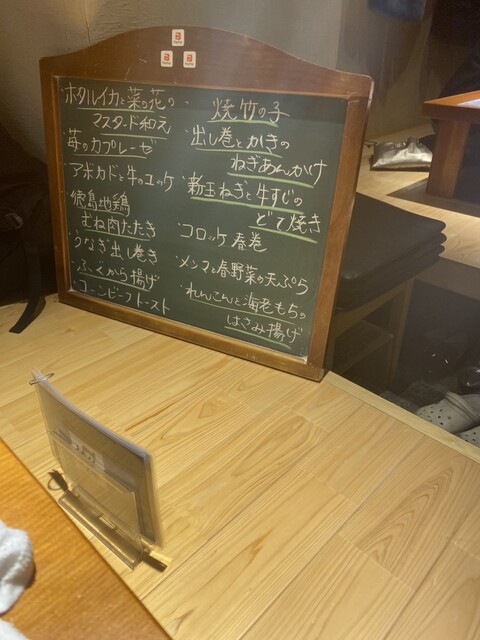 ・ホタルイカと菜の花の
マスタード和え
・苺のカプレーゼ
・アボカドと牛のユッケ
・徳島地鶏
むね肉たたき
・うなぎ出し巻き
・ふぐから揚げ
・コーンビーフトースト
・焼竹の子
・出し巻とかきの
ねぎあんかけ
・新玉ねぎと牛すじの
どて焼き
・コロッケ春巻
・メンマと春野菜の天ぷら
・れんこんと海老もちの
はさみ揚げ